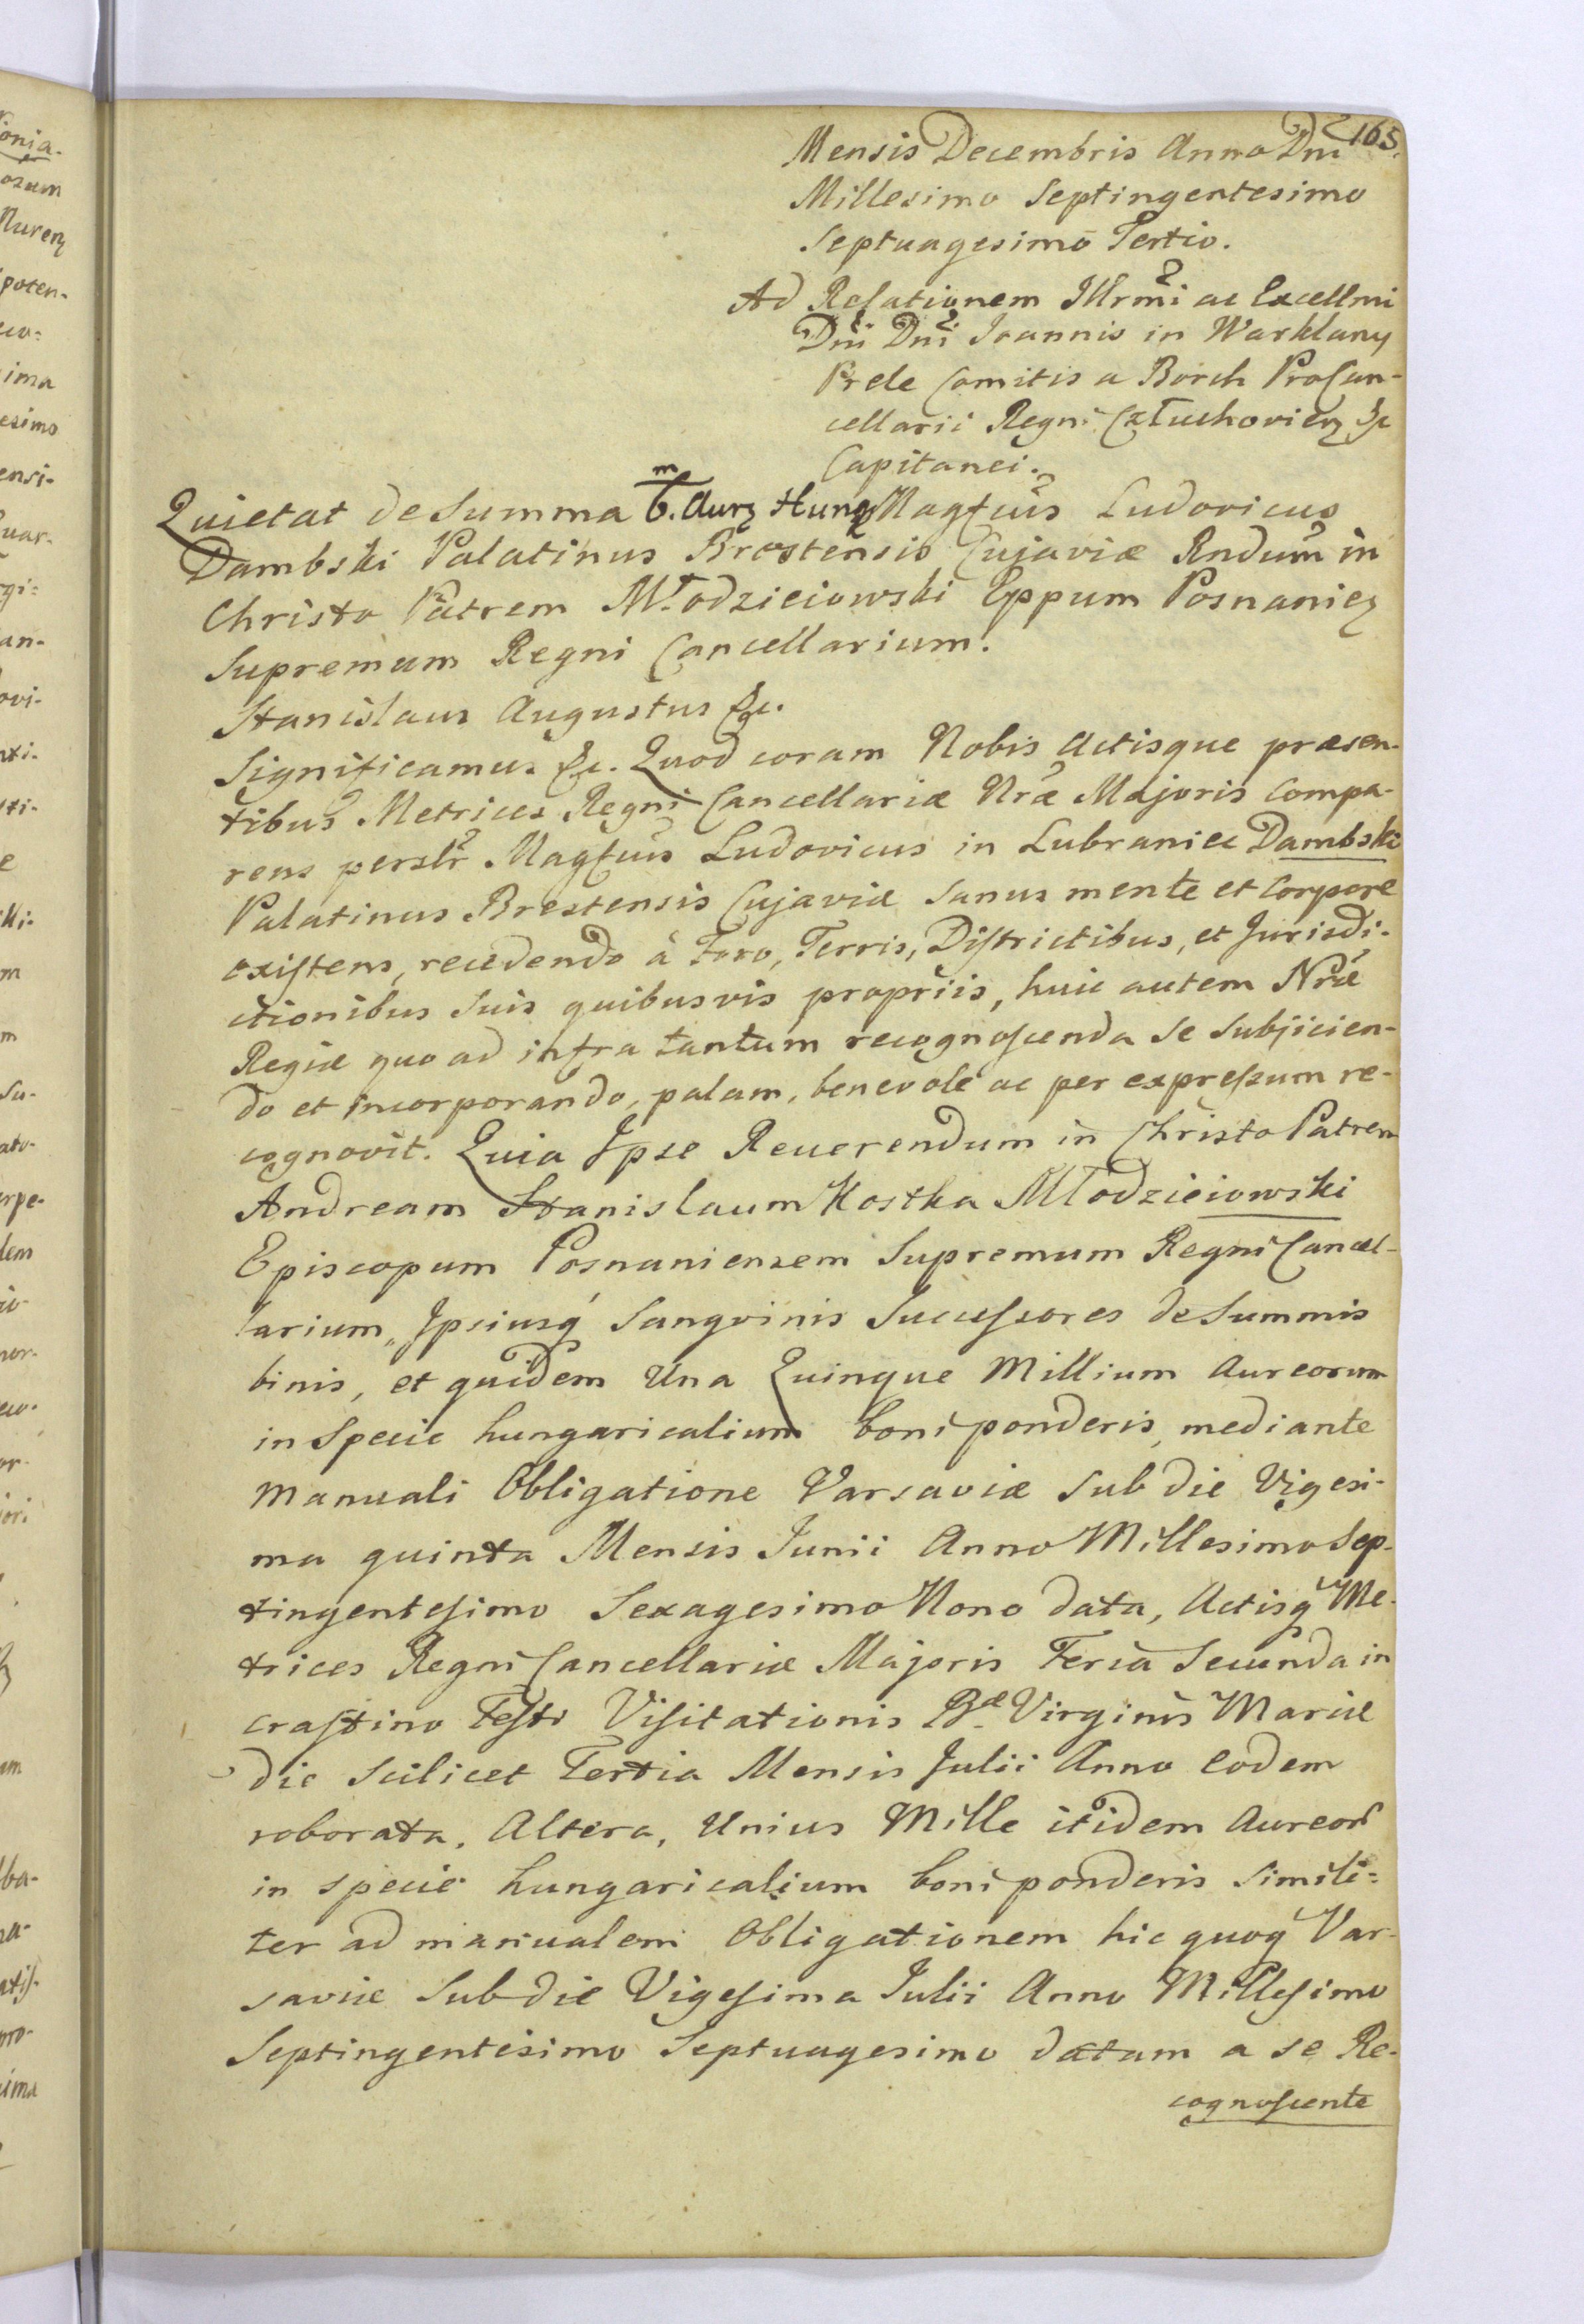 165.
Mensis Decembris Anno Dni
Millesimo Septingentesimo
Septuagesimo Tertio.
Ad Relationem Illrmi ac Excellmi
Dni Dni Joannis in Warklany
Prele Comitis a Borch ProCan-
cellarii Regni Człuchovien &c
Capitanei.
Quietat de Summa 6.m Aur Hung Magfcus Ludovicus
Dambski Palatinus Brestensis Cujaviæ Rndum in
Christo Patrem Młodzieiowski Eppum Posnanien
Supremum Regni Cancellarium.
Stanislaus Augustus &c.
Significamus &c. Quod coram Nobis Actisque præsen-
tibus Metrices Regni Cancellariæ Nræ Majoris Compa-
rens perslr Magfcus Ludovicus in Lubraniec Dambski
Palatinus Brestensis Cujaviæ sanus mente et Corpore
existens, recedendo à Foro, Terris, Districtibus, et Jurisdi-
ctionibus suis quibusvis propriis, huic autem Nræ
Regiæ quo ad infra tantum recognoscenda se subjicien-
do et incorporando, palam, benevole ac per expressum re-
cognovit. Quia Ipse Reverendum in Christo Patrem
Andream Stanislaum Kostka Młodzieiowski
Episcopum Posnaniensem Supremum Regni Cancel-
larium, Ipsiusq́ Sangvinis Successores de Summis
binis, et quidem Una Quinque Millium Aureorum
in Specie hungaricalium boni ponderis, mediante
Manuali Obligatione Varsaviæ sub die Vigesi-
ma quinta Mensis Junii Anno Millesimo Sep-
tingentesimo Sexagesimo Nono data, Actisq́ Me-
trices Regni Cancellariæ Majoris Feria Secunda in
crastino Festi Visitationis Bæ Virginis Mariæ
die scilicet Tertia Mensis Julii Anno Eodem
roborata, Altera, Unius Mille itidem Aureor
in specie hungaricalium boni ponderis simili-
ter ad manualem Obligationem hic quoq́ Var-
saviæ Sub die Vigesima Julii Anno Millesimo
Septingentesimo Septuagesimo datam a se Re-
cognoscente